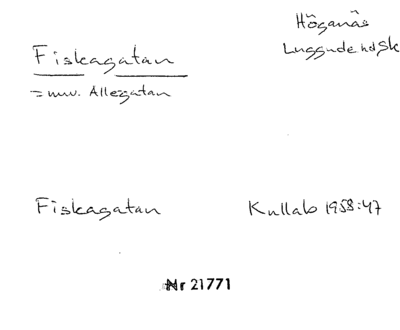 Höganäs
Fiskagatan
Luggude hd Sk
= nuv. Allégatan
Fiskagatan Kullab 1958:47
Nr 21771